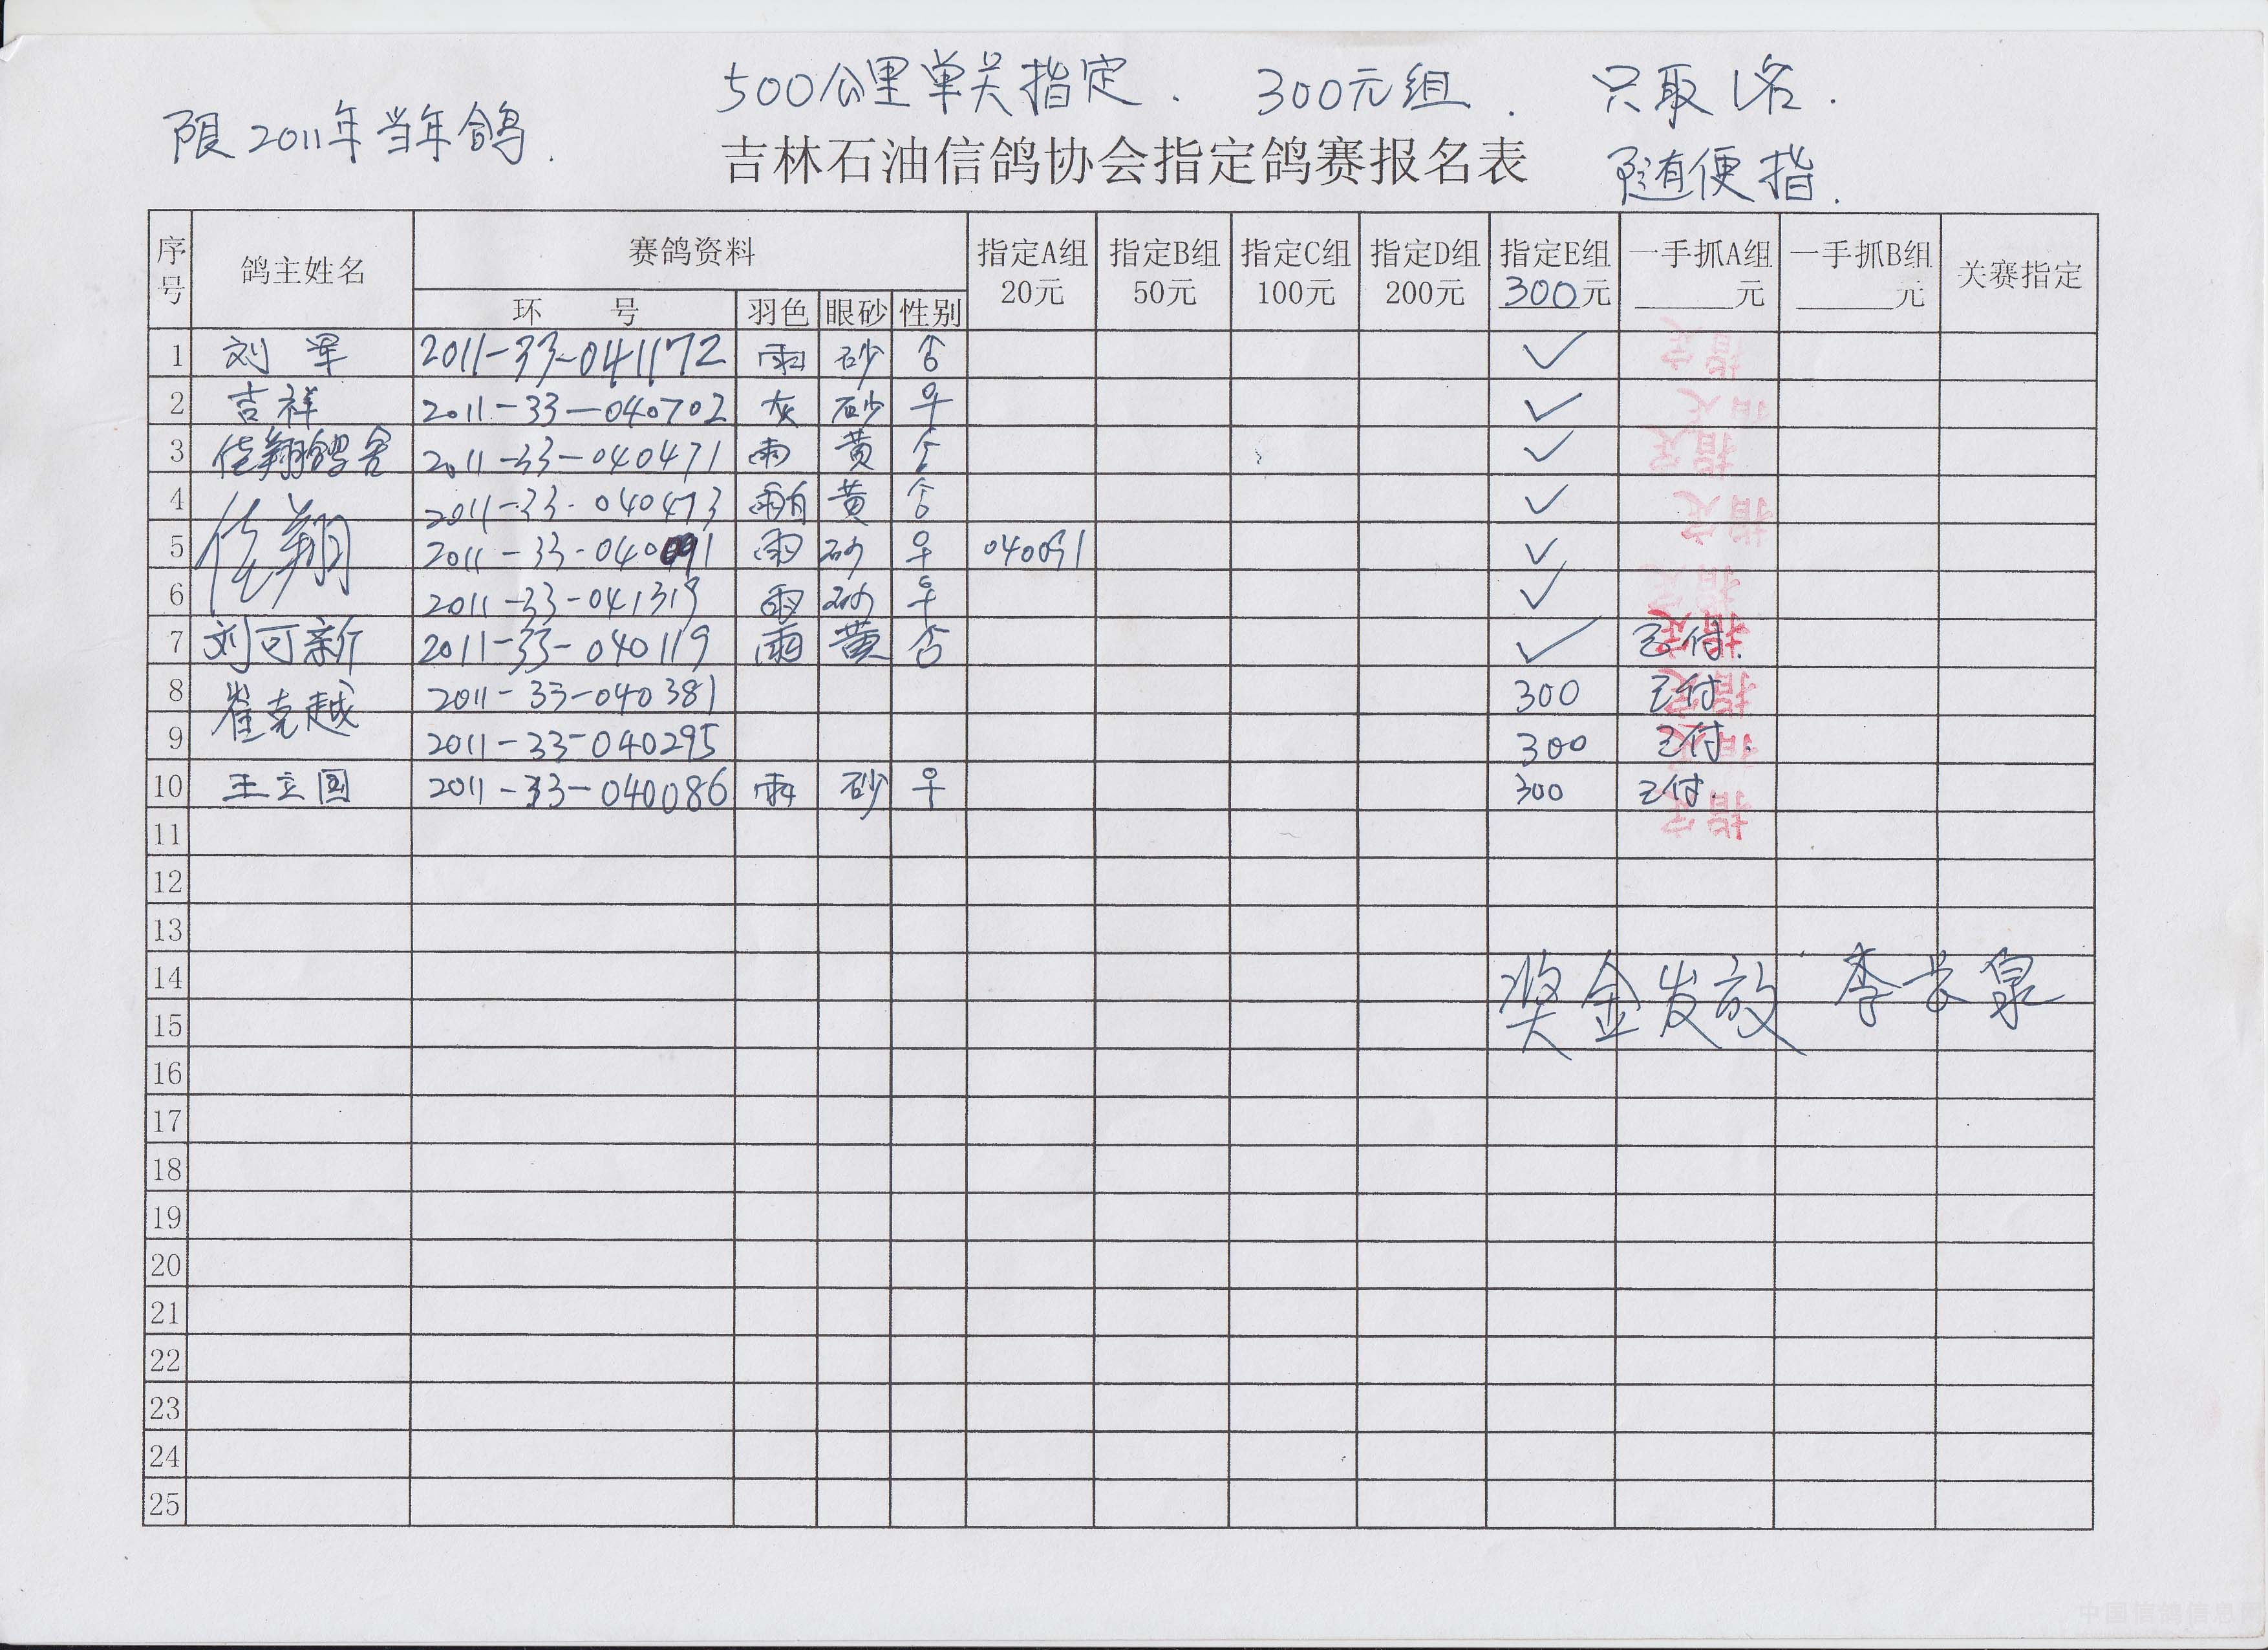 500公里单关指定. 300元组. 只取1名.
限2011年当年鸽.
吉林石油信鸽协会指定鸽赛报名表
随便指.
序号 鸽主姓名 赛鸽资料 指定A组 20元 指定B组 50元 指定C组 100元 指定D组 200元 指定E组 300元 一手抓A组 ______元 一手抓B组 ______元 关赛指定
环 号 羽色 眼砂 性别
1 刘军 2011-33-041172 雨 砂 ✓ 指定
2 吉祥 2011-33-040702 灰 砂 ♀ ✓ 指定
3 佳翔鸽舍 2011-33-040471 雨 黄 ✓ 指定
4 佳翔 2011-33-040473 黄 ✓ 指定
5 2011-33-040091 雨 砂 ♀ 040091 ✓
6 2011-33-041319 雨 砂 ♀ ✓ 指定
7 刘可新 2011-33-040119 雨 黄 ✓ 已付. 指定
8 崔克越 2011-33-040381 300 已付 指定
9 2011-33-040295 300 已付. 指定
10 王立国 2011-33-040086 雨 砂 ♀ 300 已付. 指定
11
12
13
14 奖金发放 李长泉
15
16
17
18
19
20
21
22
23
24
25
中國信鸽信息网